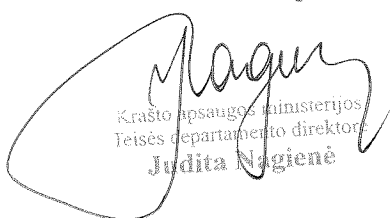 Krašto apsaugos ministerijos
Teisės departamento direktorė
Judita Nagienė